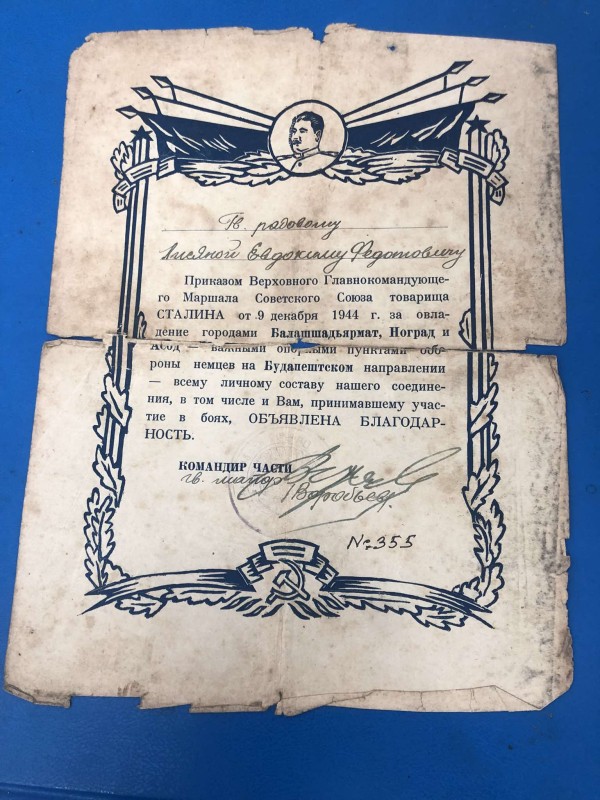 Гв. рядовому
Лисяной Евдокиму Федотовичу
Приказом Верховного Главнокомандующе-
го Маршала Советского Союза товарища
СТАЛИНА от 9 декабря 1944 г. за овла-
дение городами Балашшадьярмат, Ноград и
Асод — важными опорными пунктами обо-
роны немцев на Будапештском направлении
— всему личному составу нашего соедине-
ния, в том числе и Вам, принимавшему учас-
тие в боях, ОБЪЯВЛЕНА БЛАГОДАР-
НОСТЬ.
КОМАНДИР ЧАСТИ
гв. майор Воробьев
№ 355